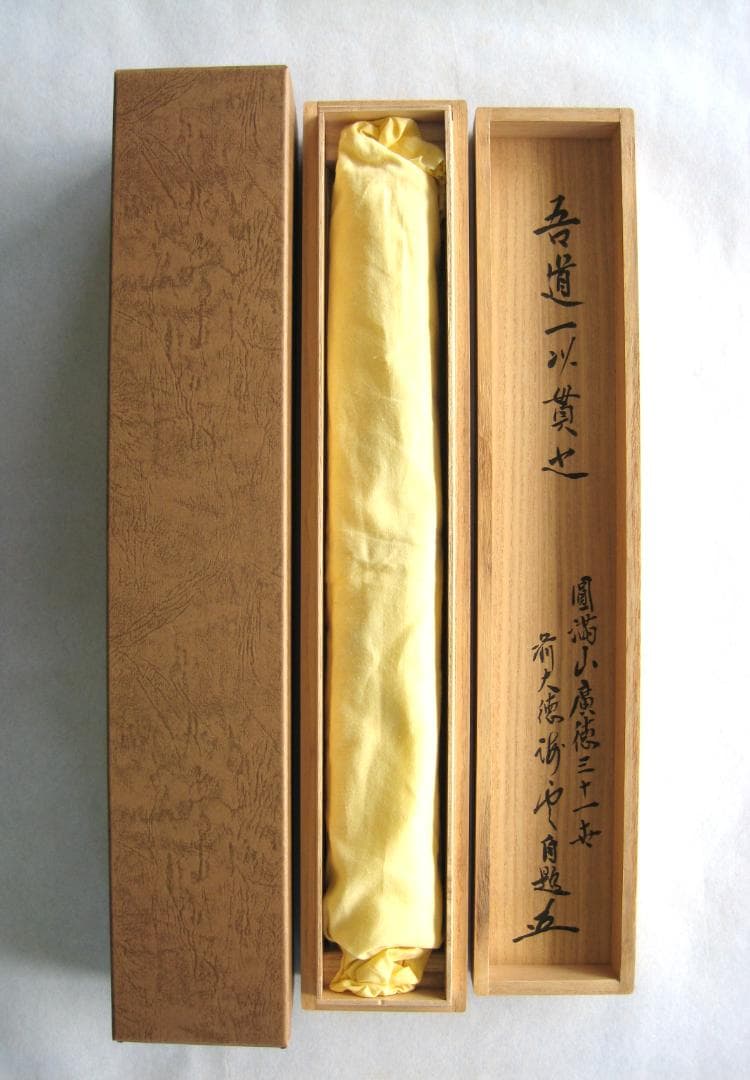 吾道一以貫之
圓満山廣徳三十一世
前大徳海雲自題